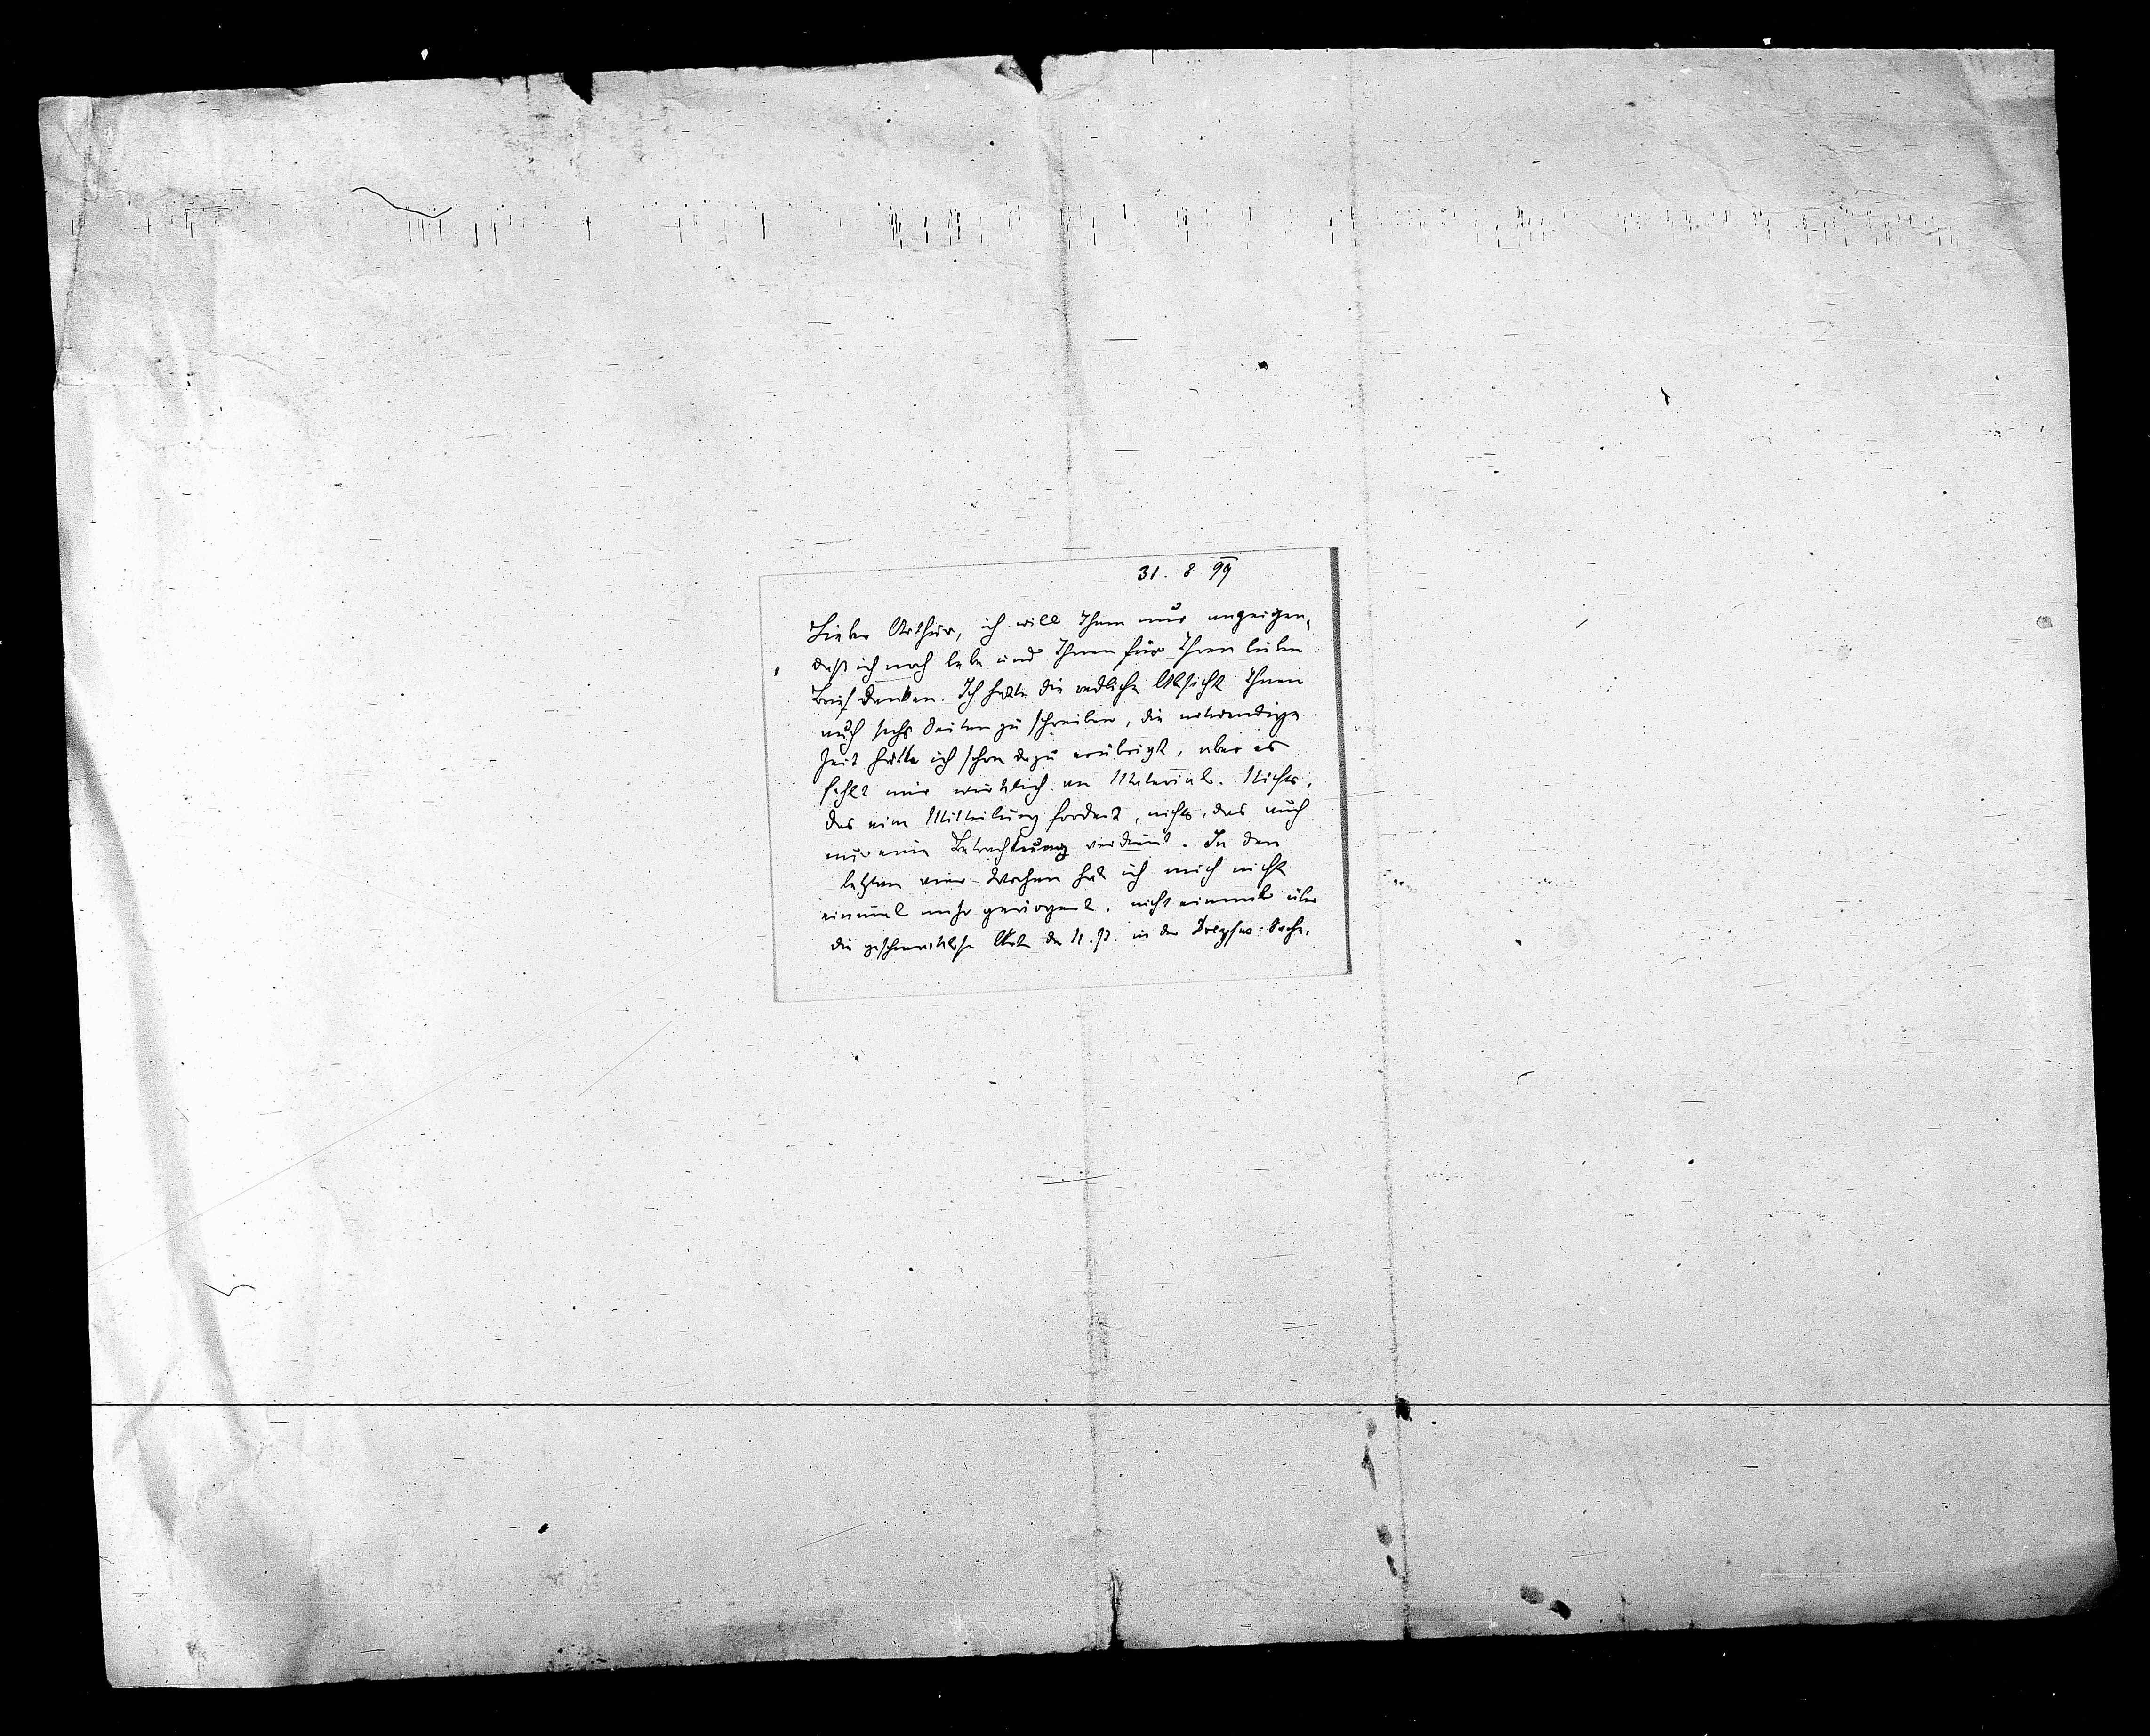 31. 8 99
Lieber Arthur, ich will Ihnen nur anzeigen,
daß ich noch lebe und Ihnen für Ihren lieben
Brief danken. Ich hatte die redliche Absicht Ihnen
auch sechs Seiten zu schreiben, die notwendige
Zeit hätte ich schon dazu erübrigt, aber es
fehlt mir wirklich an Material. Nichts,
das eine Mitteilung fordert, nichts, das auch
nur eine Betrachtung verdient. In den
letzten vier Wochen hab ich mich nicht
einmal mehr geärgert, nicht einmal über
die geschmacklose Art der N. Fr. in der Dreyfus-Sache.